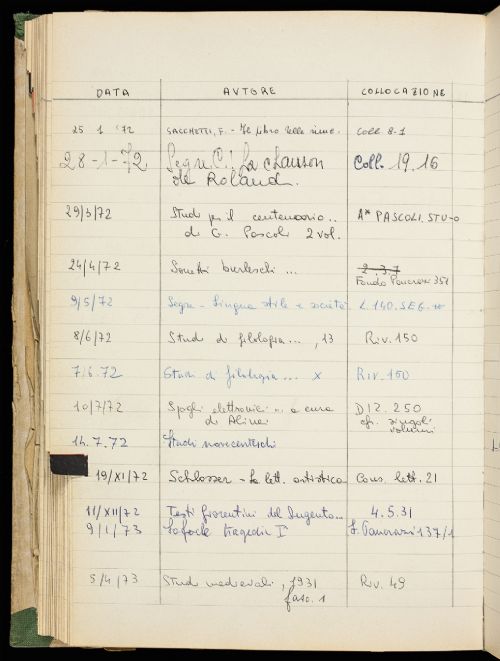 DATA AVTORE COLLOCAZIONE
25 1 '72 SACCHETTI, F. - Il libro delle rime. Coll 8-1
28-1-72 Segre, C. La chanson Coll. 19.16
de Roland.
29/3/72 Studi per il centenario.. A* PASCOLI.STU-O
di G. Pascoli 2 vol.
24/4/72 Sonetti burleschi ... 2.37
Fondo Pancrazi 351
9/5/72 Segre - Lingua stile e società L.140.SEG.
8/6/72 Studi di filologia..., 13 Riv.150
7.6.72 Studi di filologia... x Riv.150
10/7/72 Spogli elettronici ... a cura DIZ.250
di Alinei cfr. singoli
volumi
14.7.72 Studi novecenteschi
19/XI/72 Schlosser - La lett. artistica Cons. lett. 21
11/XII/72 Testi fiorentini del Dugento... 4.5.31
9/1/73 Sofocle tragedie I° F. Pancrazi 137/1
5/4/73 Studi medievali, 1931 Riv. 49
fasc. 1